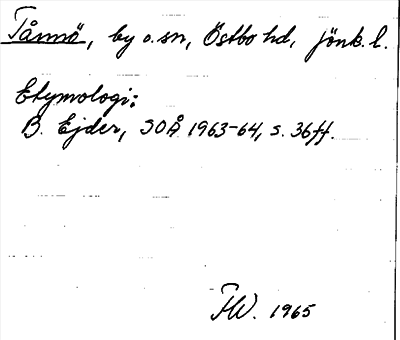 Tånnö, by o. sn, Östbo hd, Jönk. l.
Etymologi:
B. Ejder, SOÅ 1963-64, s. 36ff.
FW. 1965